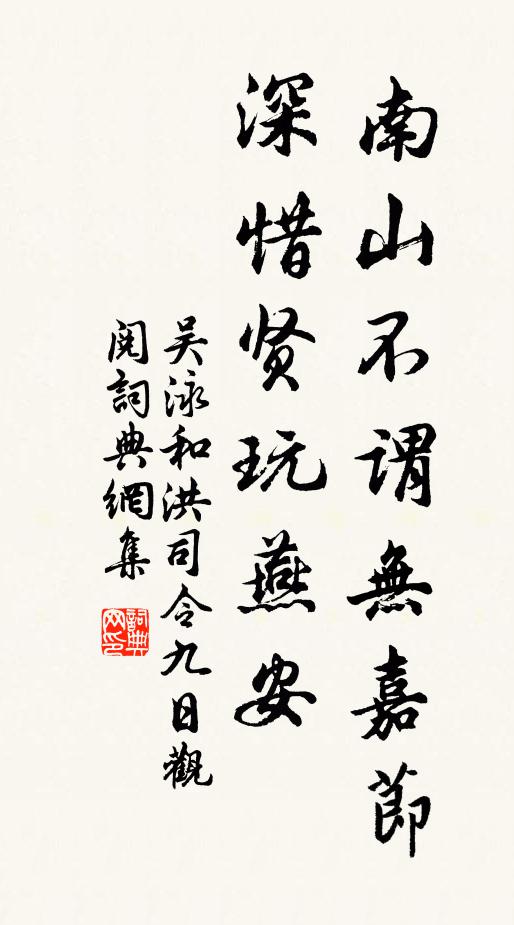 南山不謂無嘉節
深惜贤玩燕安
吴泳和洪司令九日觀
閱詞典網集
詞典
网印